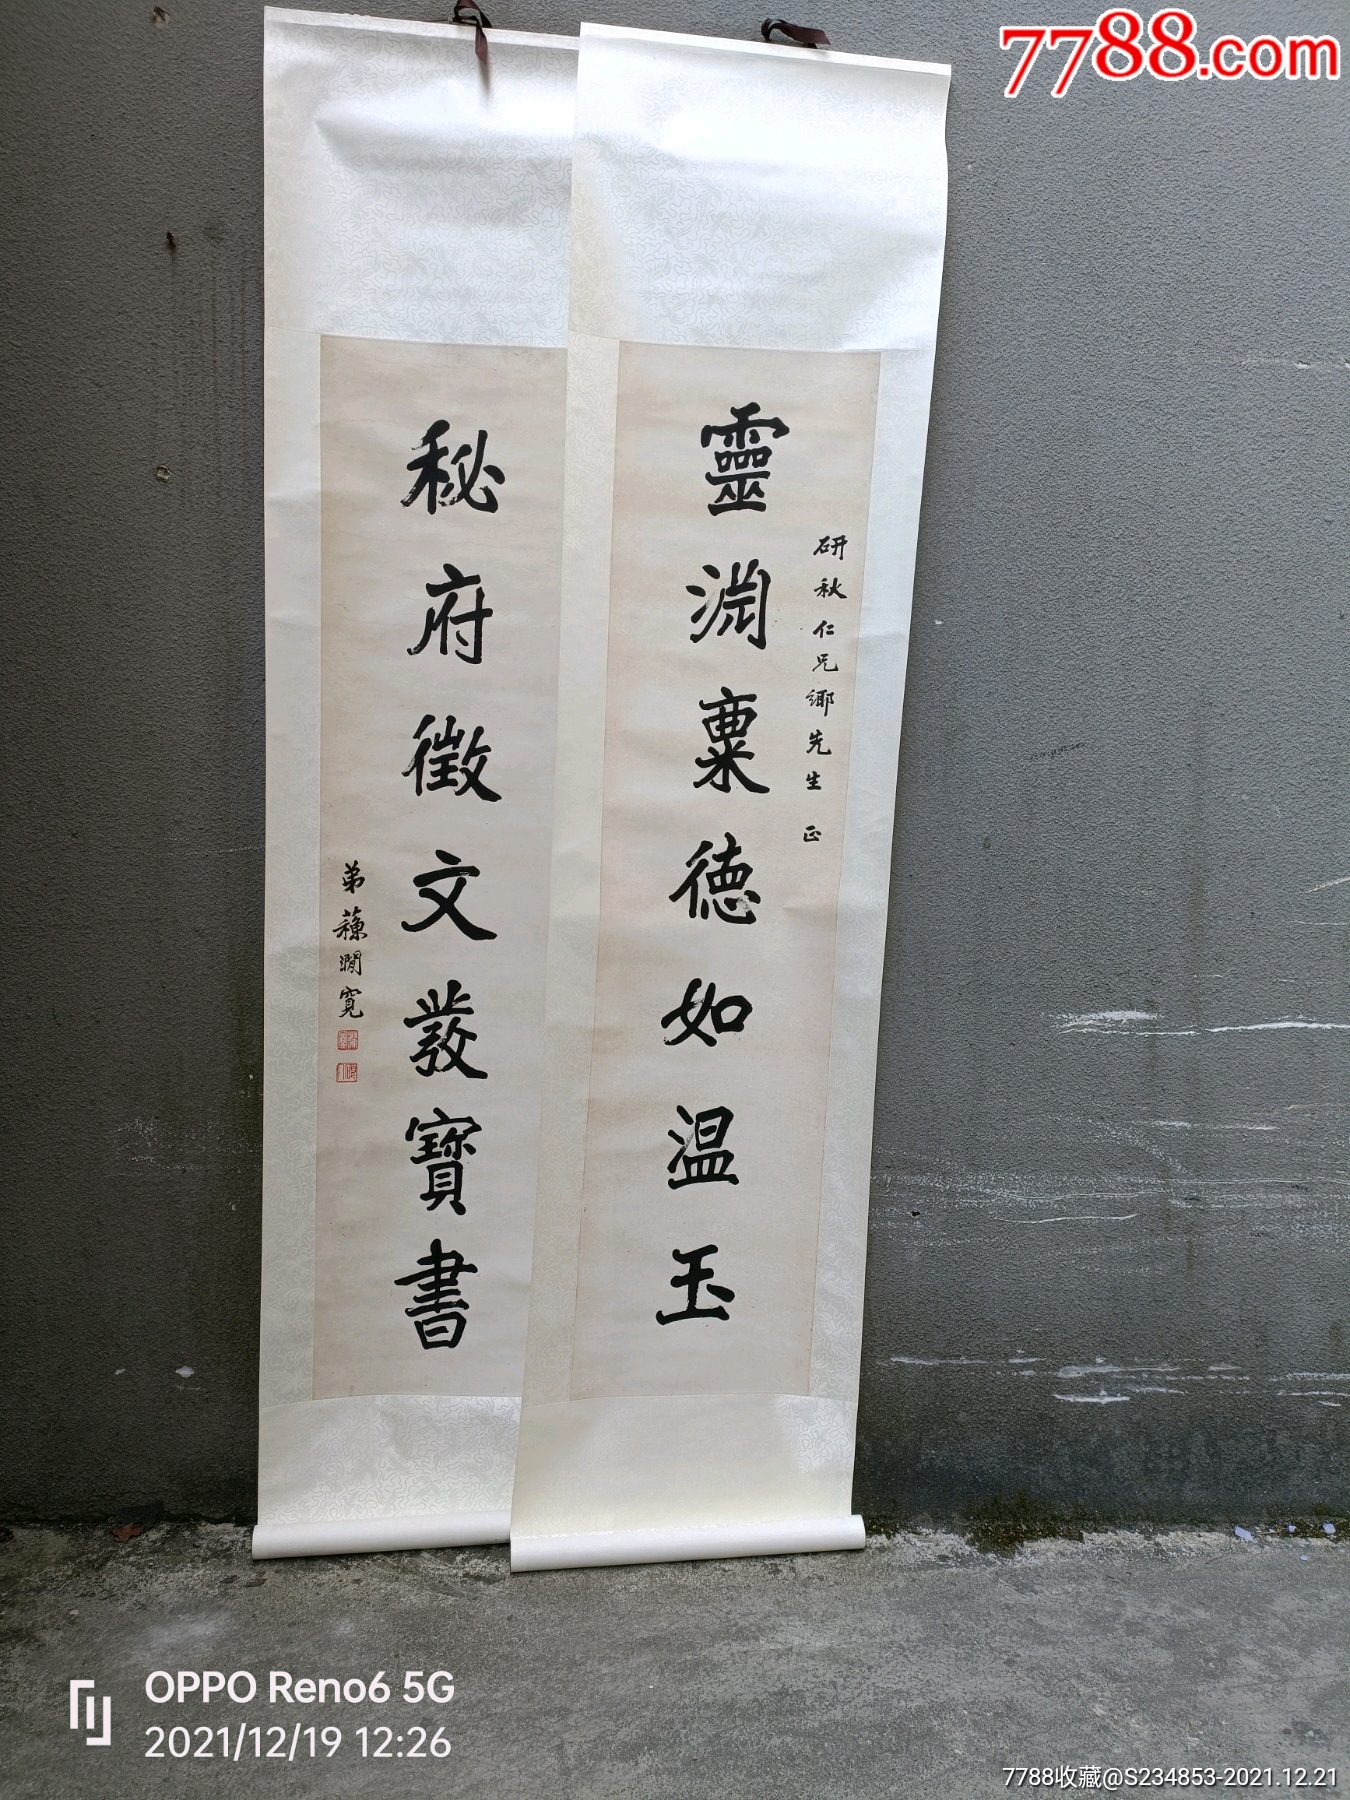 7788.com
靈淵稟德如温玉
研秋仁兄鄉先生正
秘府徵文發寶書
弟蘓澗寬
OPPO Reno6 5G
2021/12/19 12:26
7788收藏@S234853-2021.12.21